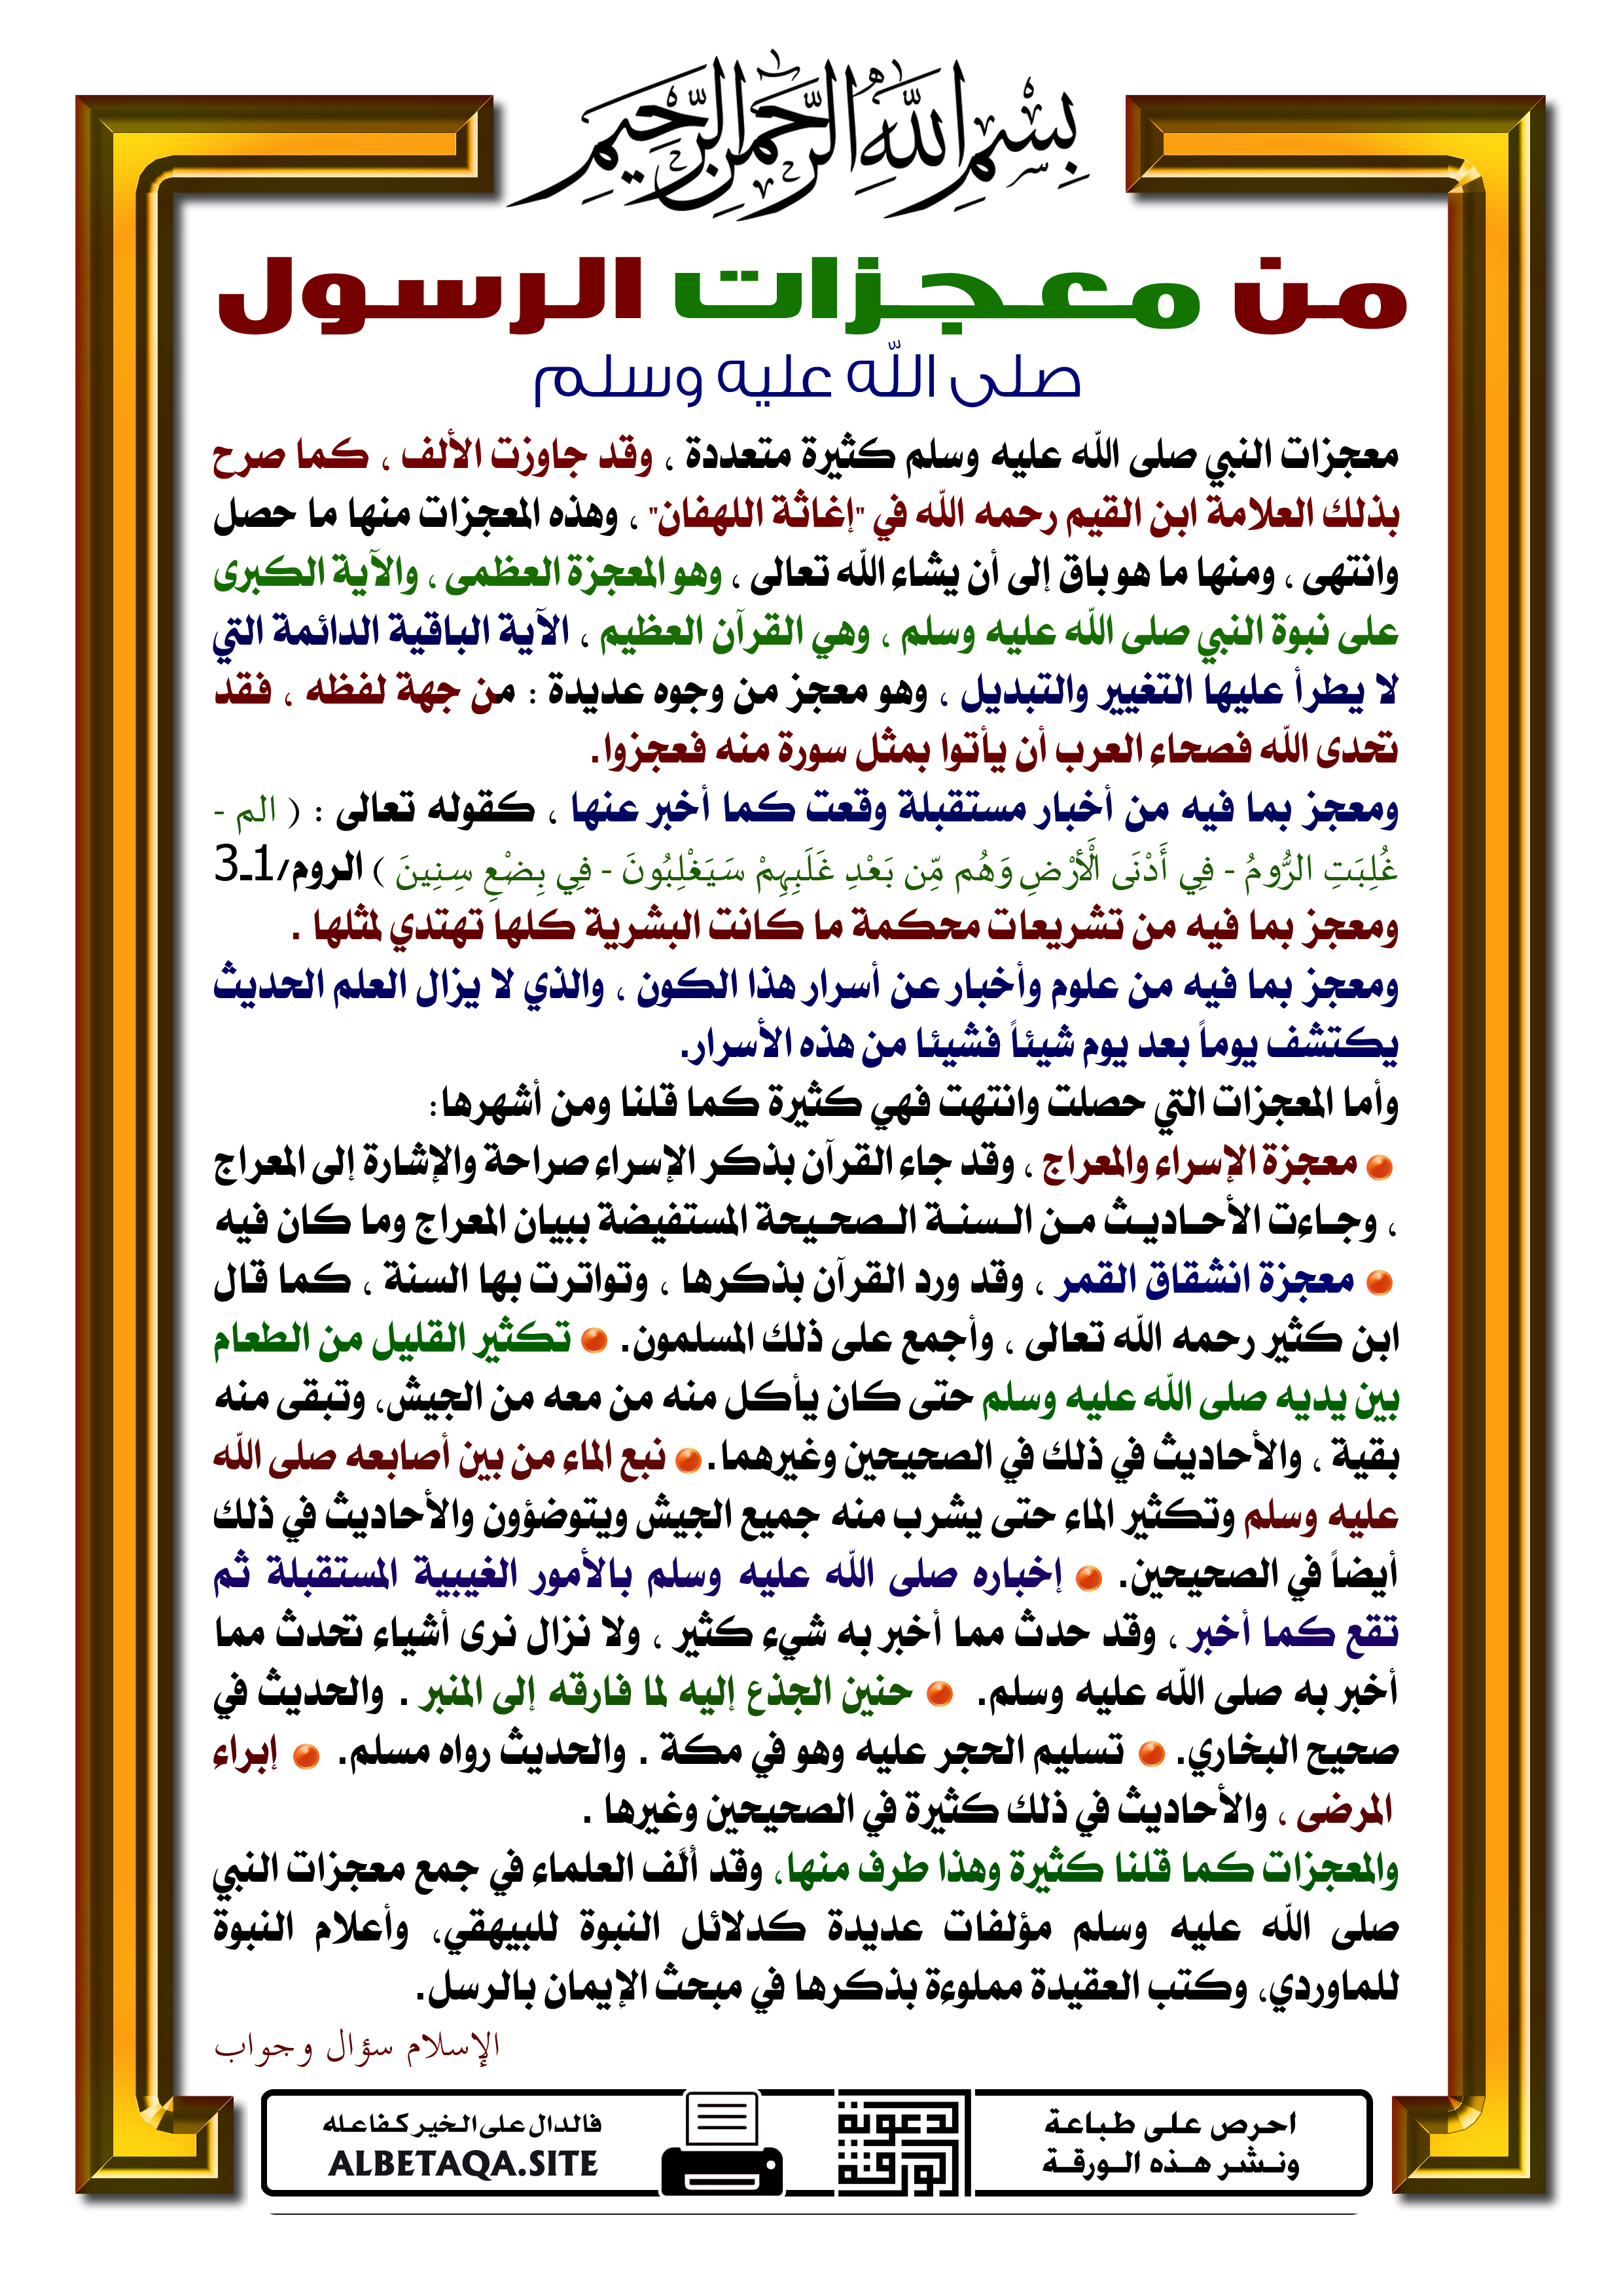 بِسْمِ اللَّهِ الرَّحْمَنِ الرَّحِيمِ
من معجزات الرسول
صلى الله عليه وسلم
معجزات النبي صلى الله عليه وسلم كثيرة متعددة ، وقد جاوزت الألف ، كما صرح
بذلك العلامة ابن القيم رحمه الله في "إغاثة اللهفان" ، وهذه المعجزات منها ما حصل
وانتهى ، ومنها ما هو باق إلى أن يشاء الله تعالى ، وهو المعجزة العظمى ، والآية الكبرى
على نبوة النبي صلى الله عليه وسلم ، وهي القرآن العظيم ، الآية الباقية الدائمة التي
لا يطرأ عليها التغيير والتبديل ، وهو معجز من وجوه عديدة : من جهة لفظه ، فقد
تحدى الله فصحاء العرب أن يأتوا بمثل سورة منه فعجزوا.
ومعجز بما فيه من أخبار مستقبلة وقعت كما أخبر عنها ، كقوله تعالى : ( الم -
غُلِبَتِ الرُّومُ - فِي أَدْنَى الْأَرْضِ وَهُم مِّن بَعْدِ غَلَبِهِمْ سَيَغْلِبُونَ - فِي بِضْعِ سِنِينَ ) الروم/1ـ3
ومعجز بما فيه من تشريعات محكمة ما كانت البشرية كلها تهتدي لمثلها .
ومعجز بما فيه من علوم وأخبار عن أسرار هذا الكون ، والذي لا يزال العلم الحديث
يكتشف يوماً بعد يوم شيئاً فشيئا من هذه الأسرار.
وأما المعجزات التي حصلت وانتهت فهي كثيرة كما قلنا ومن أشهرها:
معجزة الإسراء والمعراج ، وقد جاء القرآن بذكر الإسراء صراحة والإشارة إلى المعراج
، وجـاءت الأحـاديـث مـن الـسنـة الـصحـيحة المستفيضة ببيان المعراج وما كان فيه
معجزة انشقاق القمر ، وقد ورد القرآن بذكرها ، وتواترت بها السنة ، كما قال
ابن كثير رحمه الله تعالى ، وأجمع على ذلك المسلمون. تكثير القليل من الطعام
بين يديه صلى الله عليه وسلم حتى كان يأكل منه من معه من الجيش، وتبقى منه
بقية ، والأحاديث في ذلك في الصحيحين وغيرهما. نبع الماء من بين أصابعه صلى الله
عليه وسلم وتكثير الماء حتى يشرب منه جميع الجيش ويتوضؤون والأحاديث في ذلك
أيضاً في الصحيحين. إخباره صلى الله عليه وسلم بالأمور الغيبية المستقبلة ثم
تقع كما أخبر ، وقد حدث مما أخبر به شيء كثير ، ولا نزال نرى أشياء تحدث مما
أخبر به صلى الله عليه وسلم. حنين الجذع إليه لما فارقه إلى المنبر . والحديث في
صحيح البخاري. تسليم الحجر عليه وهو في مكة . والحديث رواه مسلم. إبراء
المرضى ، والأحاديث في ذلك كثيرة في الصحيحين وغيرها .
والمعجزات كما قلنا كثيرة وهذا طرف منها، وقد ألَّف العلماء في جمع معجزات النبي
صلى الله عليه وسلم مؤلفات عديدة كدلائل النبوة للبيهقي، وأعلام النبوة
للماوردي، وكتب العقيدة مملوءة بذكرها في مبحث الإيمان بالرسل.
الإسلام سؤال وجواب
احرص على طباعة
ونـشـر هـذه الـورقـة
لدعوتة
الورقة
فالدال على الخير كـفاعله
ALBETAQA.SITE